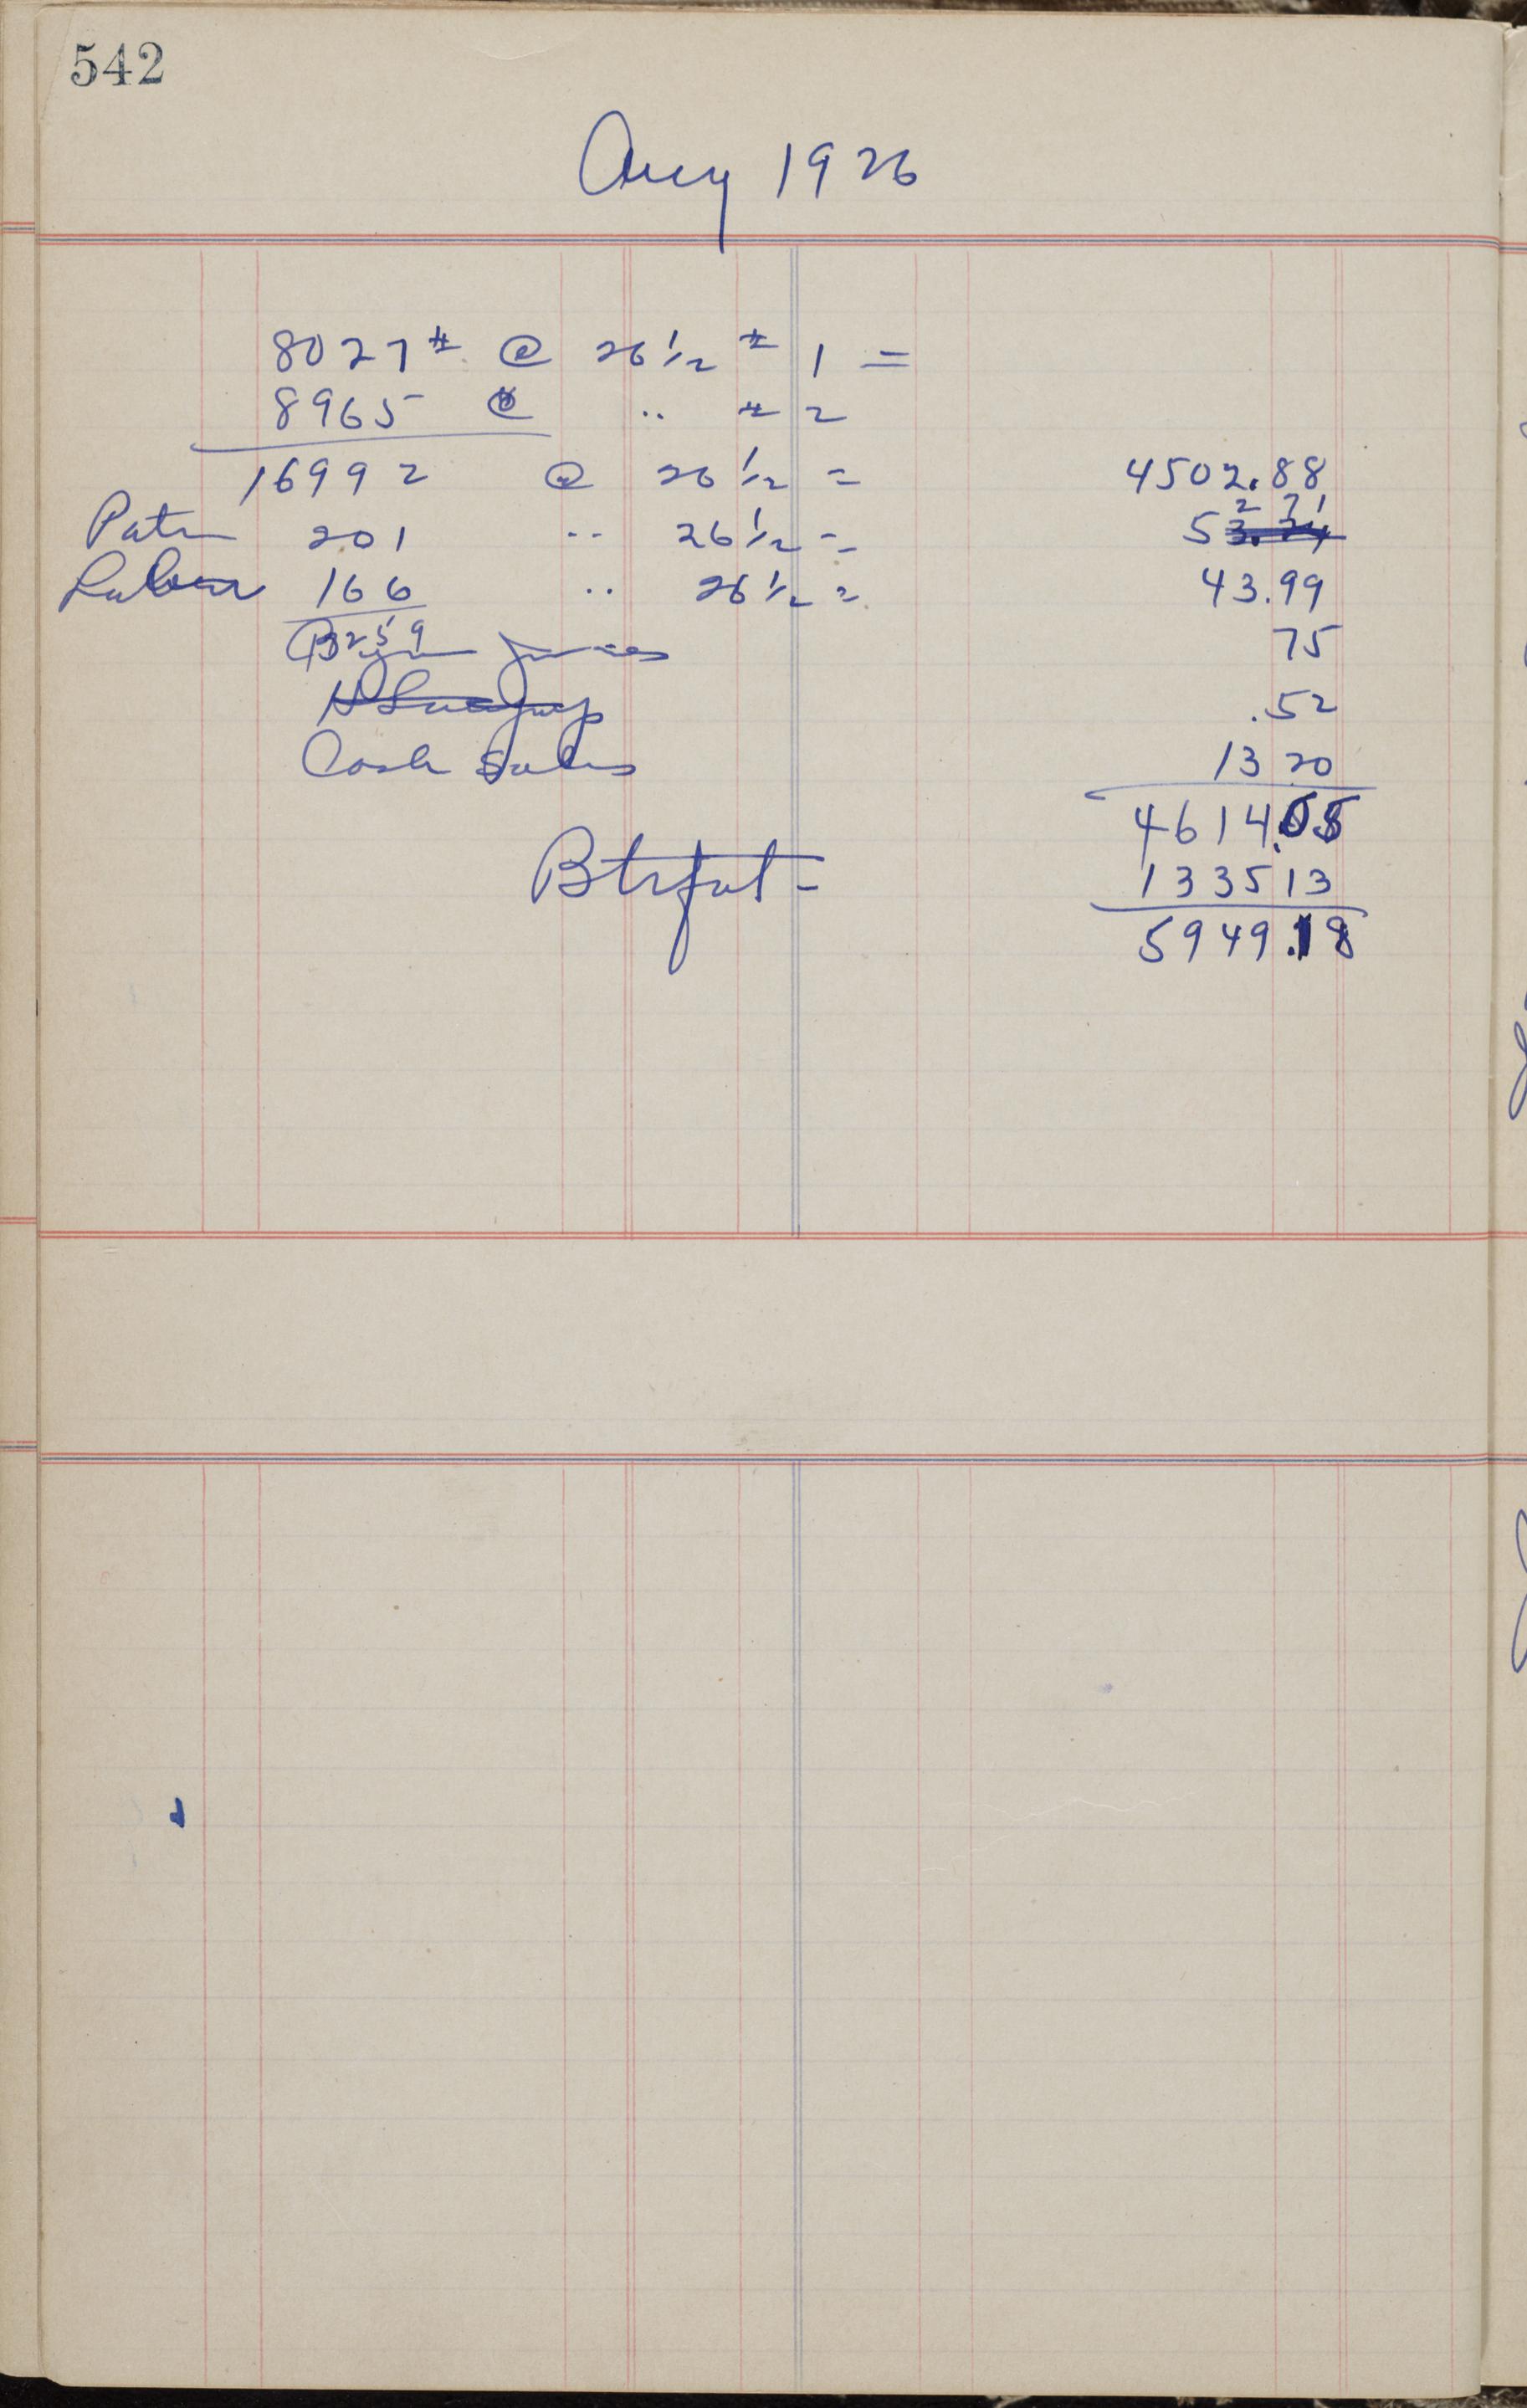 542
Aug 1926
8027# @ 26 1/2 # 1 =
8965 @ .. # 2
16992 @ 26 1/2 = 4502.88
2 71
Patr 201 .. 26 1/2 = 53.74
Labor 166 .. 26 1/2 = 43.99
359
75
.52
Cash Sales 13 20
4614.05
Btrfat = 1335 13
5949.18